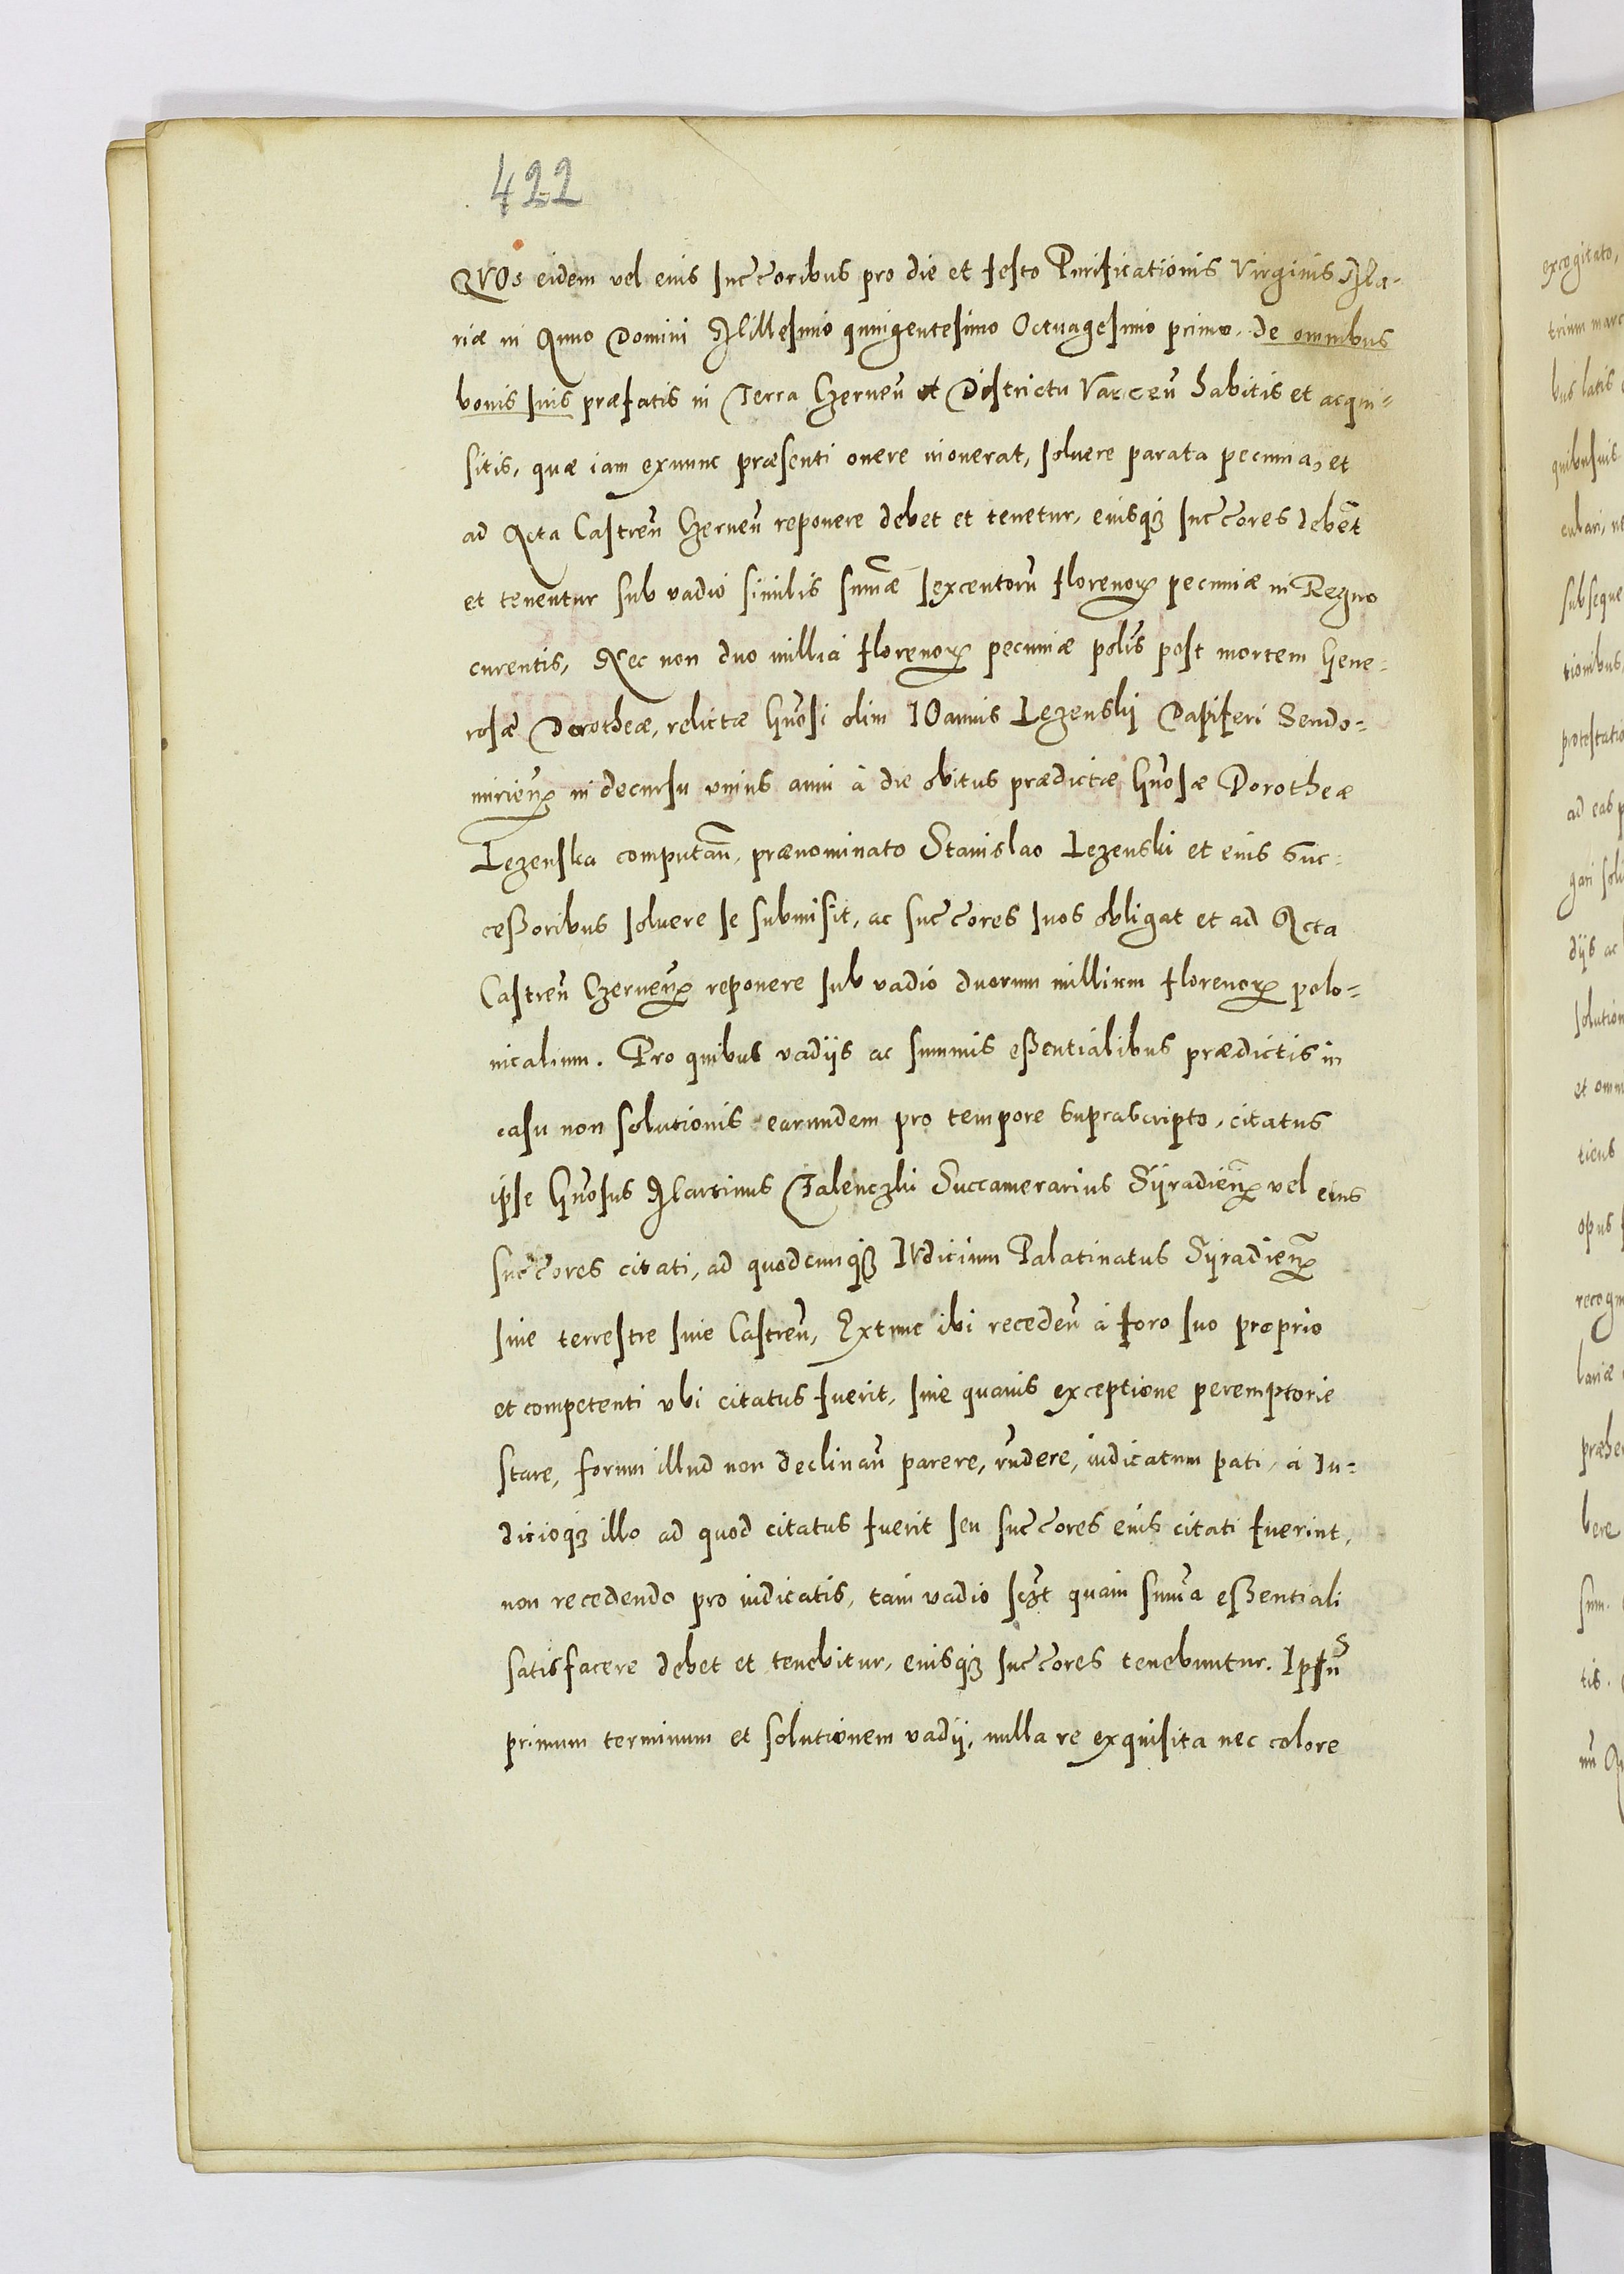 422
QVOs eidem vel eius succ̃oribus pro die et festo Purificationis Virginis Ma-
riæ in Anno Domini Millesimo quingentesimo Octuagesimo primo. de omnibus
bonis suis præfatis in Terra Czerneñ et Districtu Varceñ habitis et acqui=
sitis, quæ iam exnunc præsenti onere inonerat, soluere parata pecunia, et
ad Acta Castreñ Czerneñ reponere debet et tenetur, eiusqꝫ succ̃ores debẽt
et tenentur sub vadio similis sum̃æ sexcentorũ florenoꝝ pecuniæ in Regno
curentis, Nec non duo millia florenoꝝ pecuniæ polis̃ post mortem Gene=
rosæ Dorotheæ, relictæ Gnõsi olim IOannis Lezenskij Dapiferi Sendo=
mirieñ in decursu vnius anni à die obitus prædictæ Gnõsæ Dorotheæ
Lezenska computañ, prænominato Stanislao Lezenski et eius Suc=
ceßoribus soluere se submisit, ac succ̃ores suos obligat et ad Acta
Castreñ Czerneñ reponere sub vadio duorum millium florenoꝝ polo=
nicalium. Pro quibus vadijs ac summis eßentialibus prædictis in
casu non solutionis earundem pro tempore suprascripto, citatus
ipse Gnõsus Martinus Zalenczki Succamerarius Syradieñ vel eius
succ̃ores citati, ad quodcunqꝫ IVdicium Palatinatus Syradieñ
siue terrestre siue Castreñ, Extunc ibi recedeñ à foro suo proprio
et competenti vbi citatus fuerit, sine quauis exceptione peremptorie
stare, forum illud non declinañ parere, rñdere, iudicatum pati, à Iu=
dicioqꝫ illo ad quod citatus fuerit seu succ̃ores eius citati fuerint,
non recedendo pro iudicatis, tam vadio sczt̃ quam sum̃a eßentiali
satisfacere debet et tenebitur, eiusqꝫ succ̃ores tenebuntur. Ipsũ
primum terminum et solutionem vadij, nulla re exquisita nec colore
excogitato,
trium marc
bus latis
quibusuis
cubari, ne
subseque
tionibus,
protestatio
ad eas p
gari solu
dijs ac
solution
et omn
ticus
opus
recogn
laniæ
præhe
bere
sum.
tis.